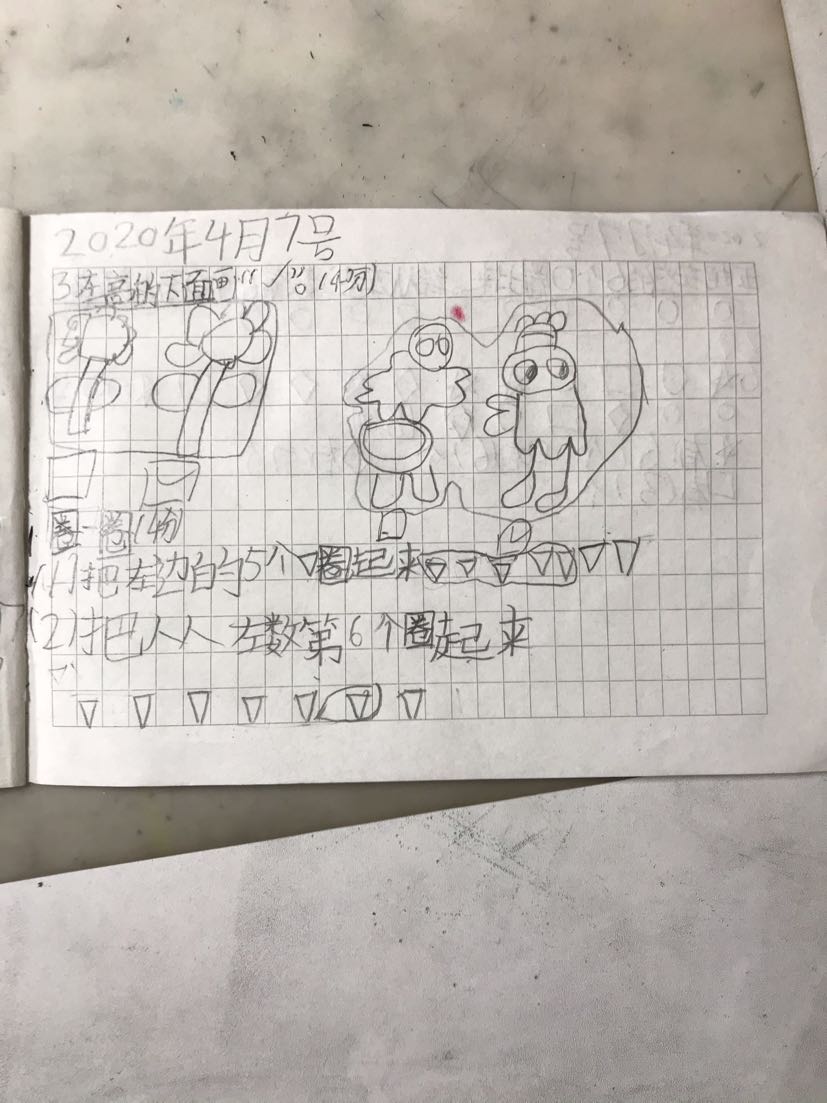 2020年4月7号
3.在高的下面画“✓”。(4分)
圈一圈(4分)
(1)把左边的5个▽圈起来▽▽▽▽▽▽▽
(2)把从左数第6个圈起来
▽▽▽▽▽▽▽